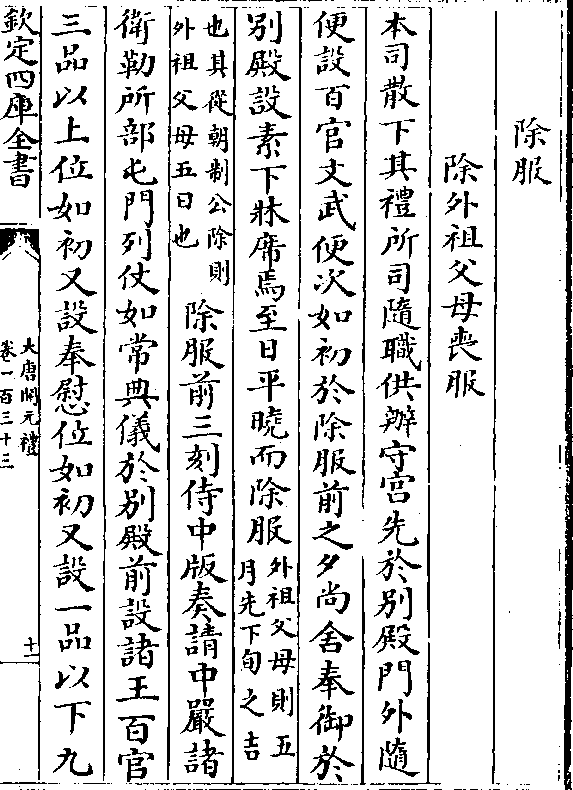 除服
除外祖父母喪服
本司散下其禮所司隨職供辦守宫先於别殿門外隨
便設百官文武便次如初於除服前之夕尚舍奉御於
别殿設素下牀席焉至日平曉而除服外祖父母則五
月先下旬之吉
也其從朝制公除則
外祖父母五日也
除服前三刻侍中版奏請中嚴諸
衛勒所部屯門列仗如常典儀於别殿前設諸王百官
三品以上位如初又設奉慰位如初又設一品以下九
欽定四庫全書
大唐開元禮
卷一百三十三
十一